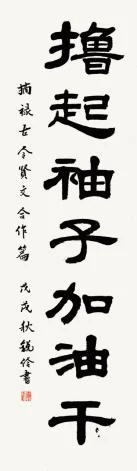 撸起袖子加油干
摘禄古今贤文合作篇 戊戌秋锐伶书